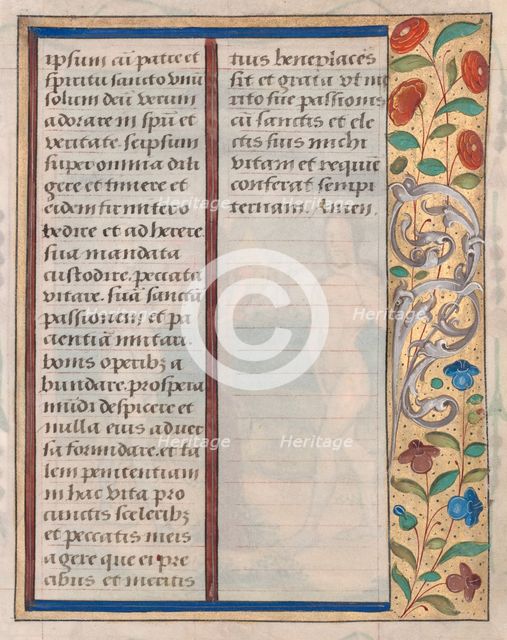 ipsum cū patre et
spiritu sancto vnū
solum deū verum
adorare in spū et
veritate. seipsum
super omnia dili
gere et timere et
eidem firmiter o
bedire et adherere.
sua mandata
custodire. peccata
vitare. suā sanctā
passionem et pa
cientiā imitari.
bonis operibꝫ a
bundare. prospera
mūdi despicere et
nulla eius aduer
sa formidare. et ta
lem penitentiam
in hac vita pro
cunctis sceleribꝫ
et peccatis meis
agere que ei pre
cibus et meritis
tuis beneplacēs
sit et grata vt me
rito sue passionis
cū sanctis et ele
ctis suis michi
vitam et requiē
conferat sempi
ternam. Amen.
Heritage
Heritage
Heritage
Heritage
Heritage
Heritage
Heritage
Heritage
Heritage
C